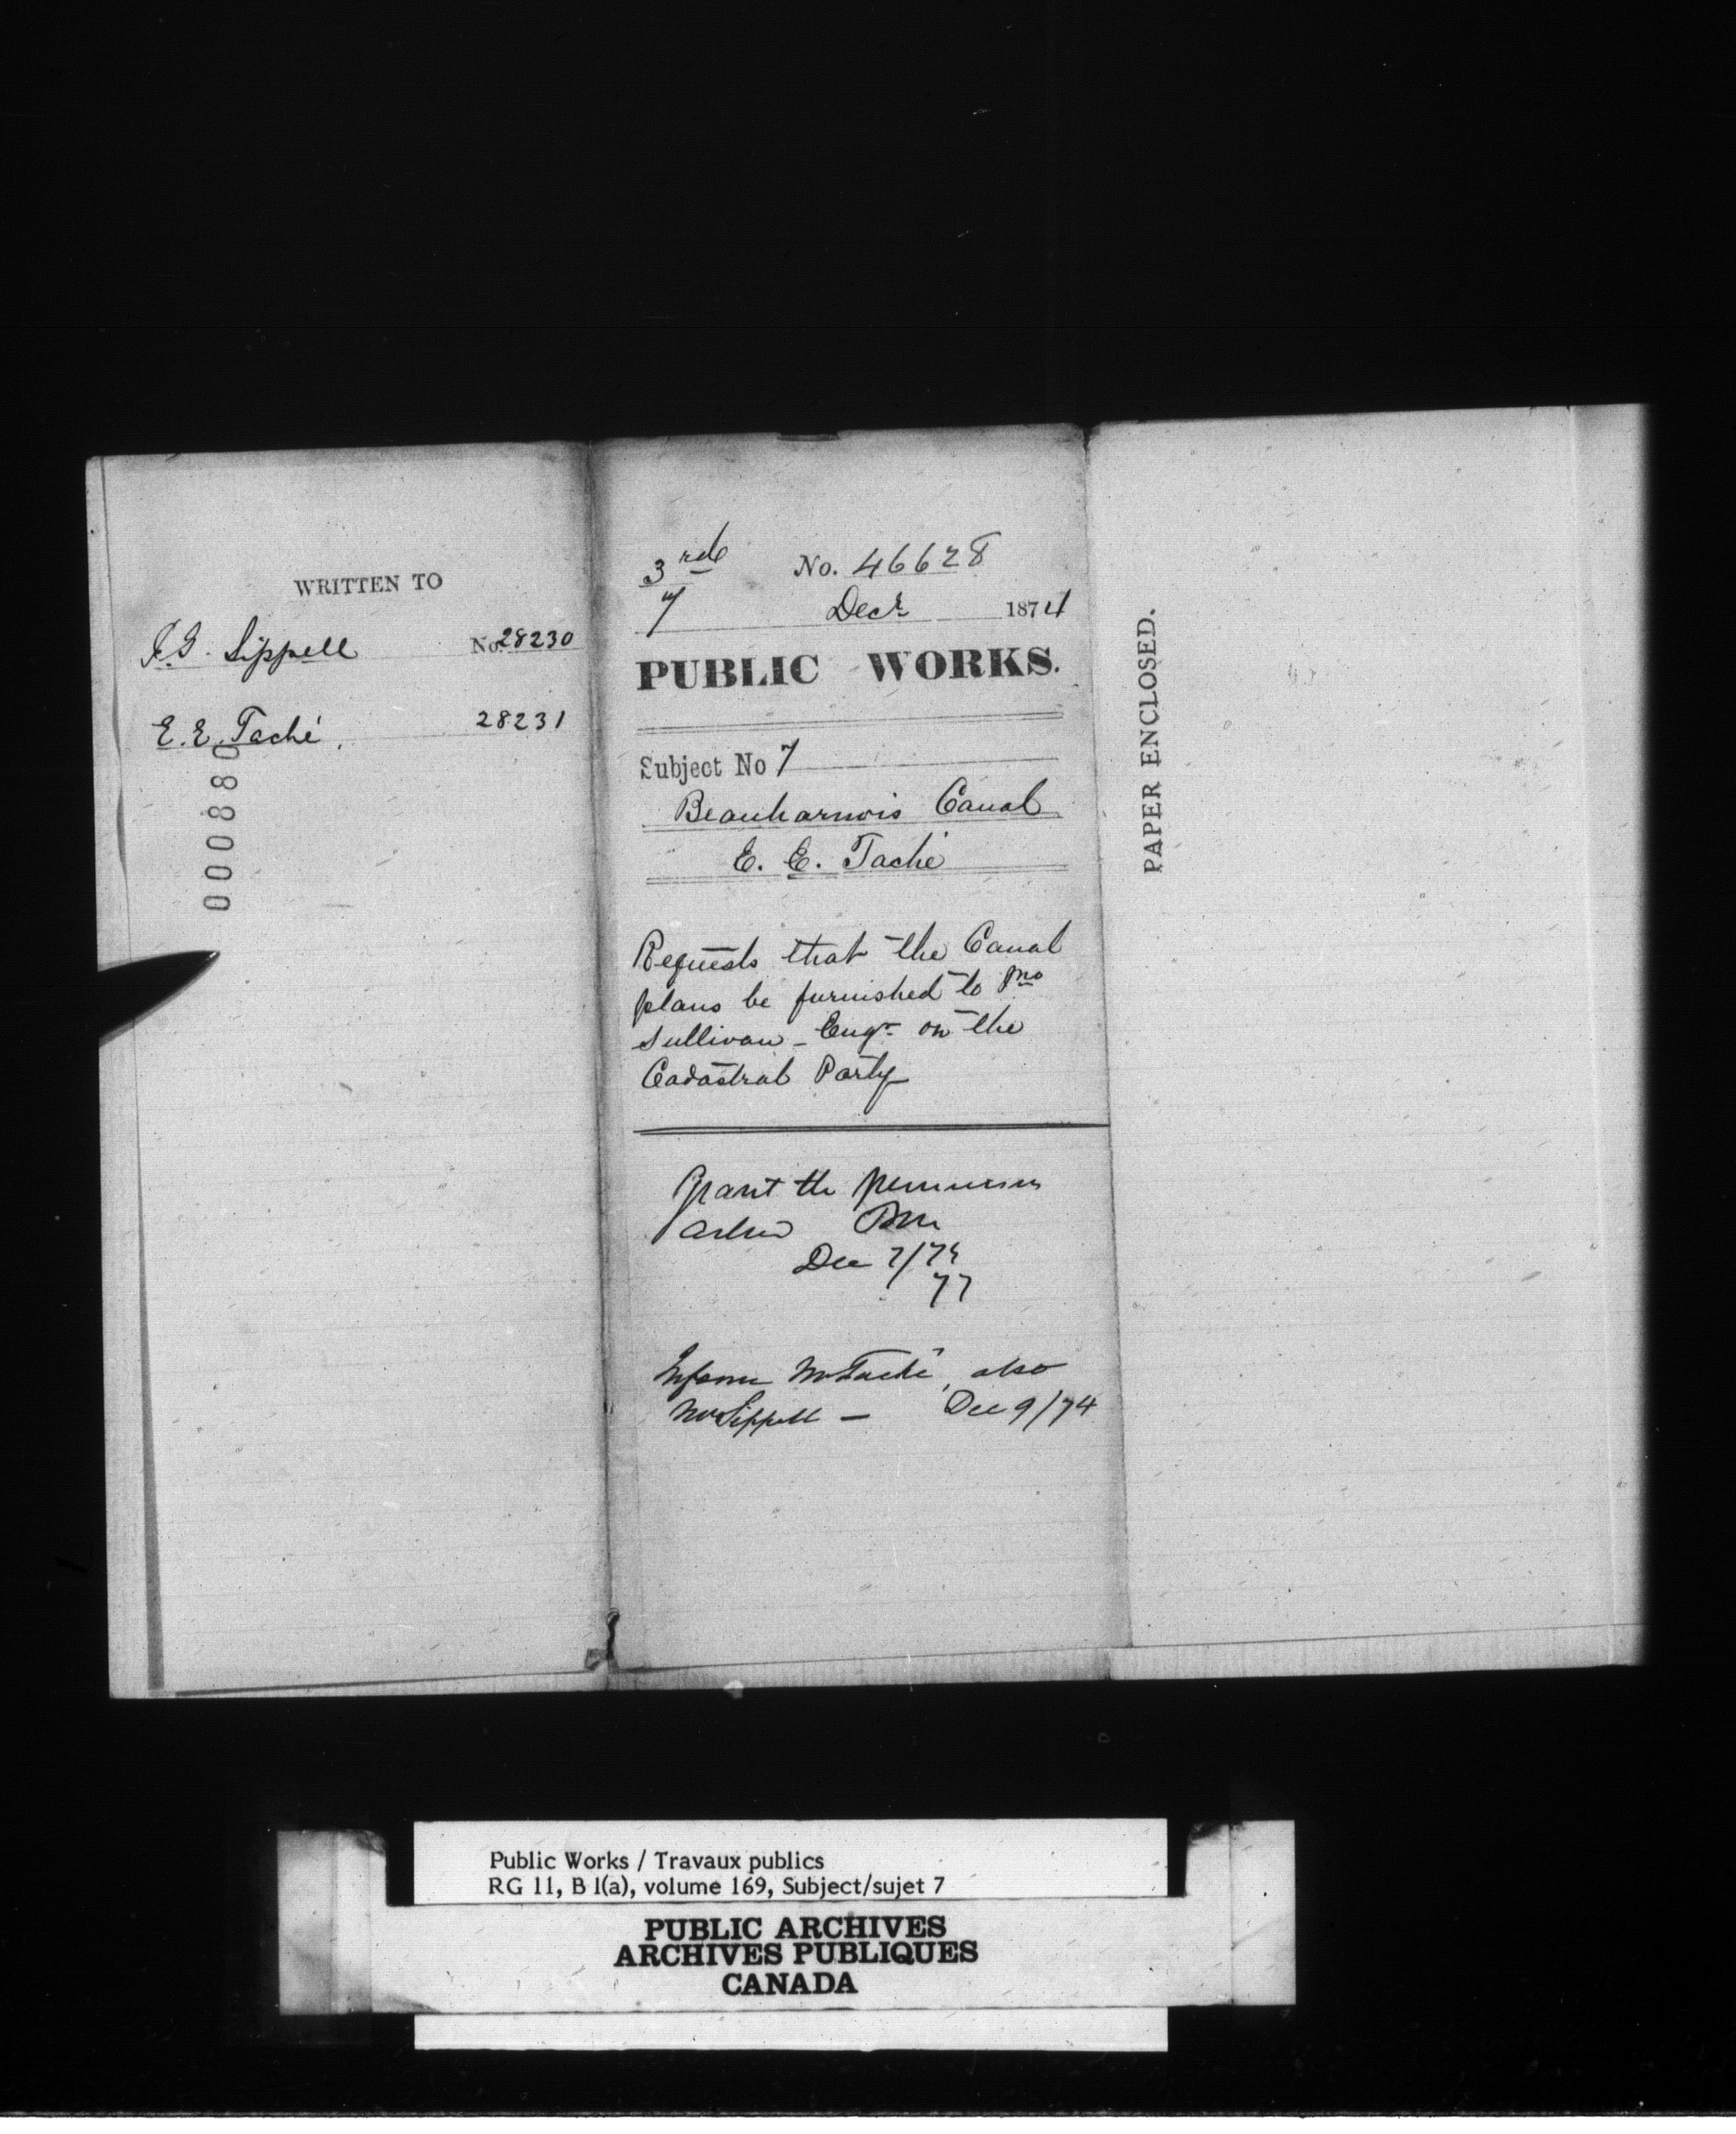 WRITTEN TO
J.G. Sippell No. 28230
E. E. Taché. 28231
000880
3rd No. 46628
7 Decr. 1874
PUBLIC WORKS.
Subject No 7
Beauharnois Canal
E. E. Taché
Requests that the Canal
plans be furnished to
Sullivan - Engr. on the
Cadastral Party
Grant the permission
asked
Dec 7/74
Inform Mr Taché, also
Mr Sippell — Dec 9/74
PAPER ENCLOSED.
Public Works / Travaux publics
RG 11, B 1(a), volume 169, Subject/sujet 7
PUBLIC ARCHIVES
ARCHIVES PUBLIQUES
CANADA